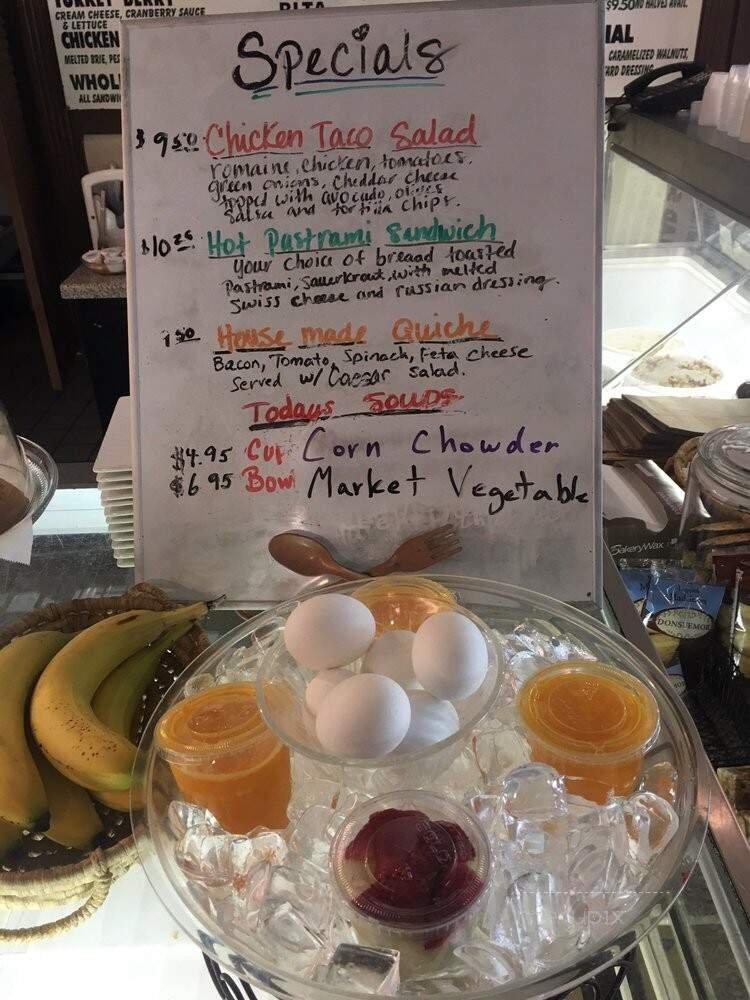 TURKEY BERRY
CREAM CHEESE, CRANBERRY SAUCE
& LETTUCE
CHICKEN
MELTED BRIE, PES
WHOL
ALL SANDWI
PITA
$9.50 NO HALVES AVAIL.
IAL
CARAMELIZED WALNUTS,
ARD DRESSING
Specials
$9.50 Chicken Taco Salad
romaine, chicken, tomatoes,
green onions, cheddar cheese
topped with avocado, olives
Salsa and tortilla chips.
$10.25 Hot Pastrami Sandwich
Your choice of breaad toasted
Pastrami, Sauerkraut, with melted
Swiss cheese and russian dressing.
7.50 House made Quiche
Bacon, Tomato, Spinach, Feta cheese
Served w/ Caesar Salad.
Todays Soups
$4.95 Cup Corn Chowder
$6.95 Bowl Market Vegetable
BakeryWax
DONSUEMOR